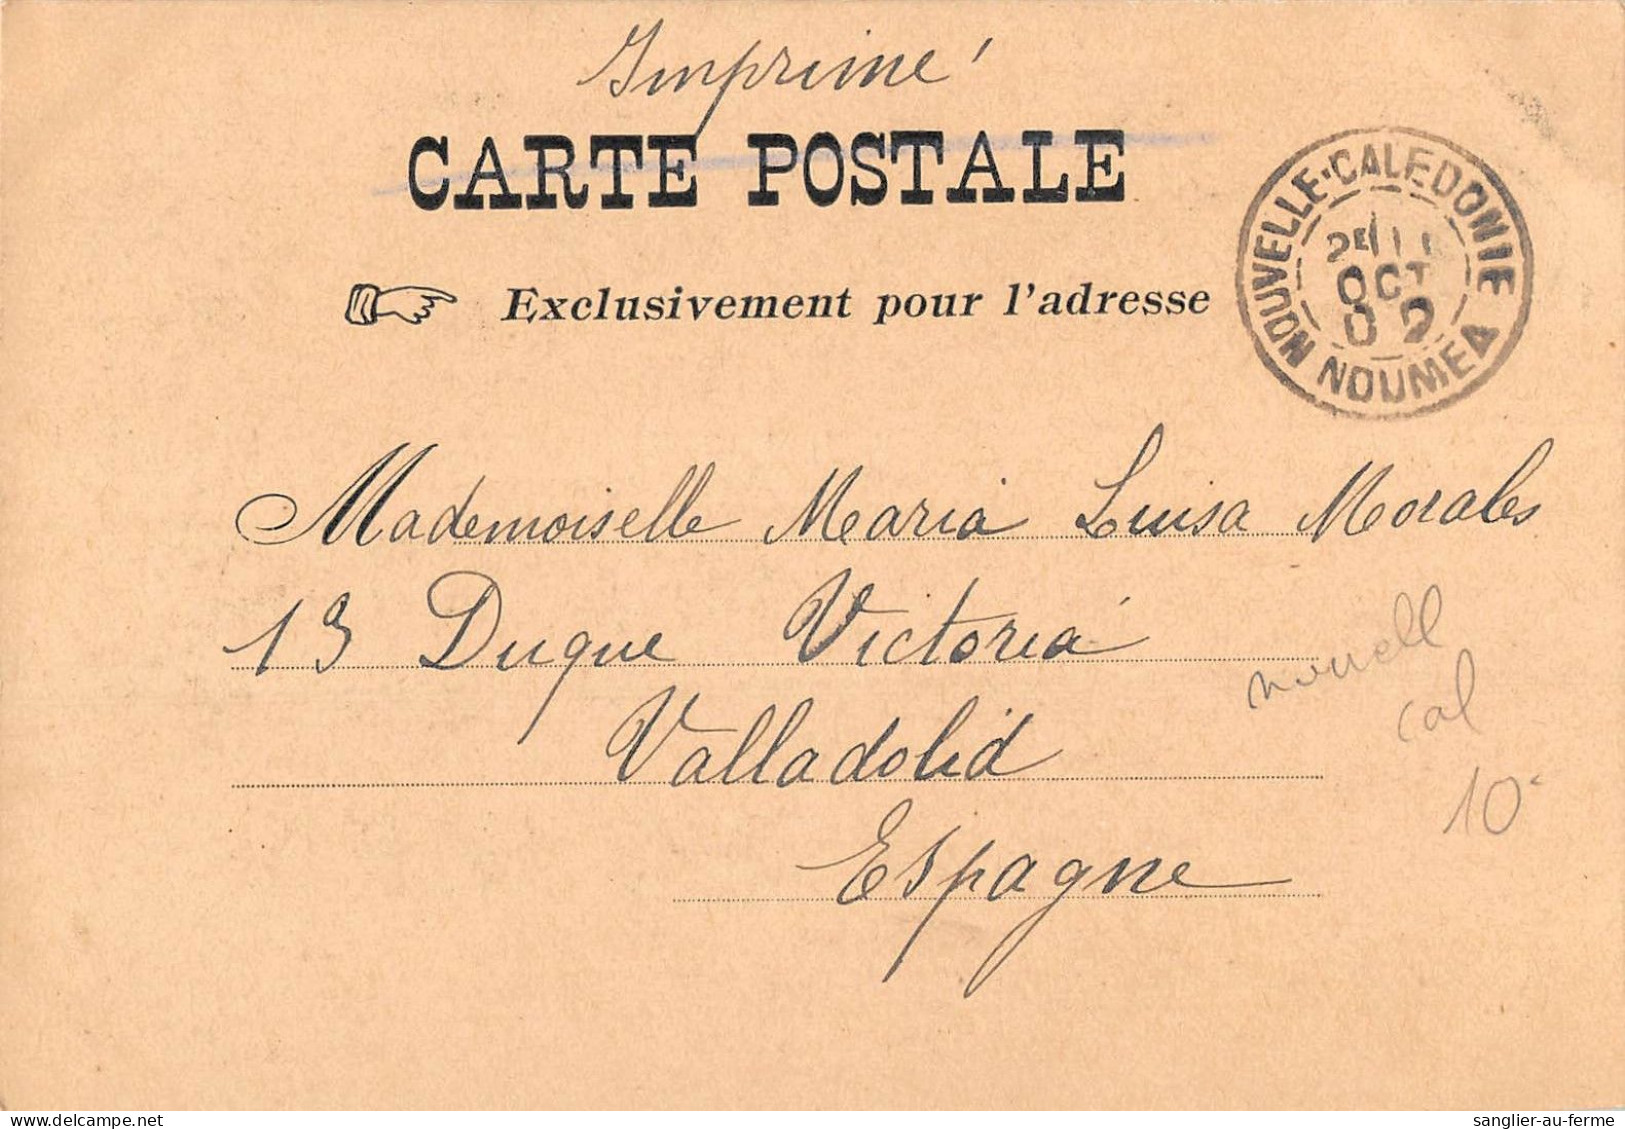 Imprimé
CARTE POSTALE
Exclusivement pour l'adresse
NOUVELLE-CALEDONIE
OCT
NOUMEA
Mademoiselle Maria Luisa Morales
13 Duque Victoria
Valladolid
Espagne
nouvell
cal
10
delcampe.net
sanglier-au-ferme